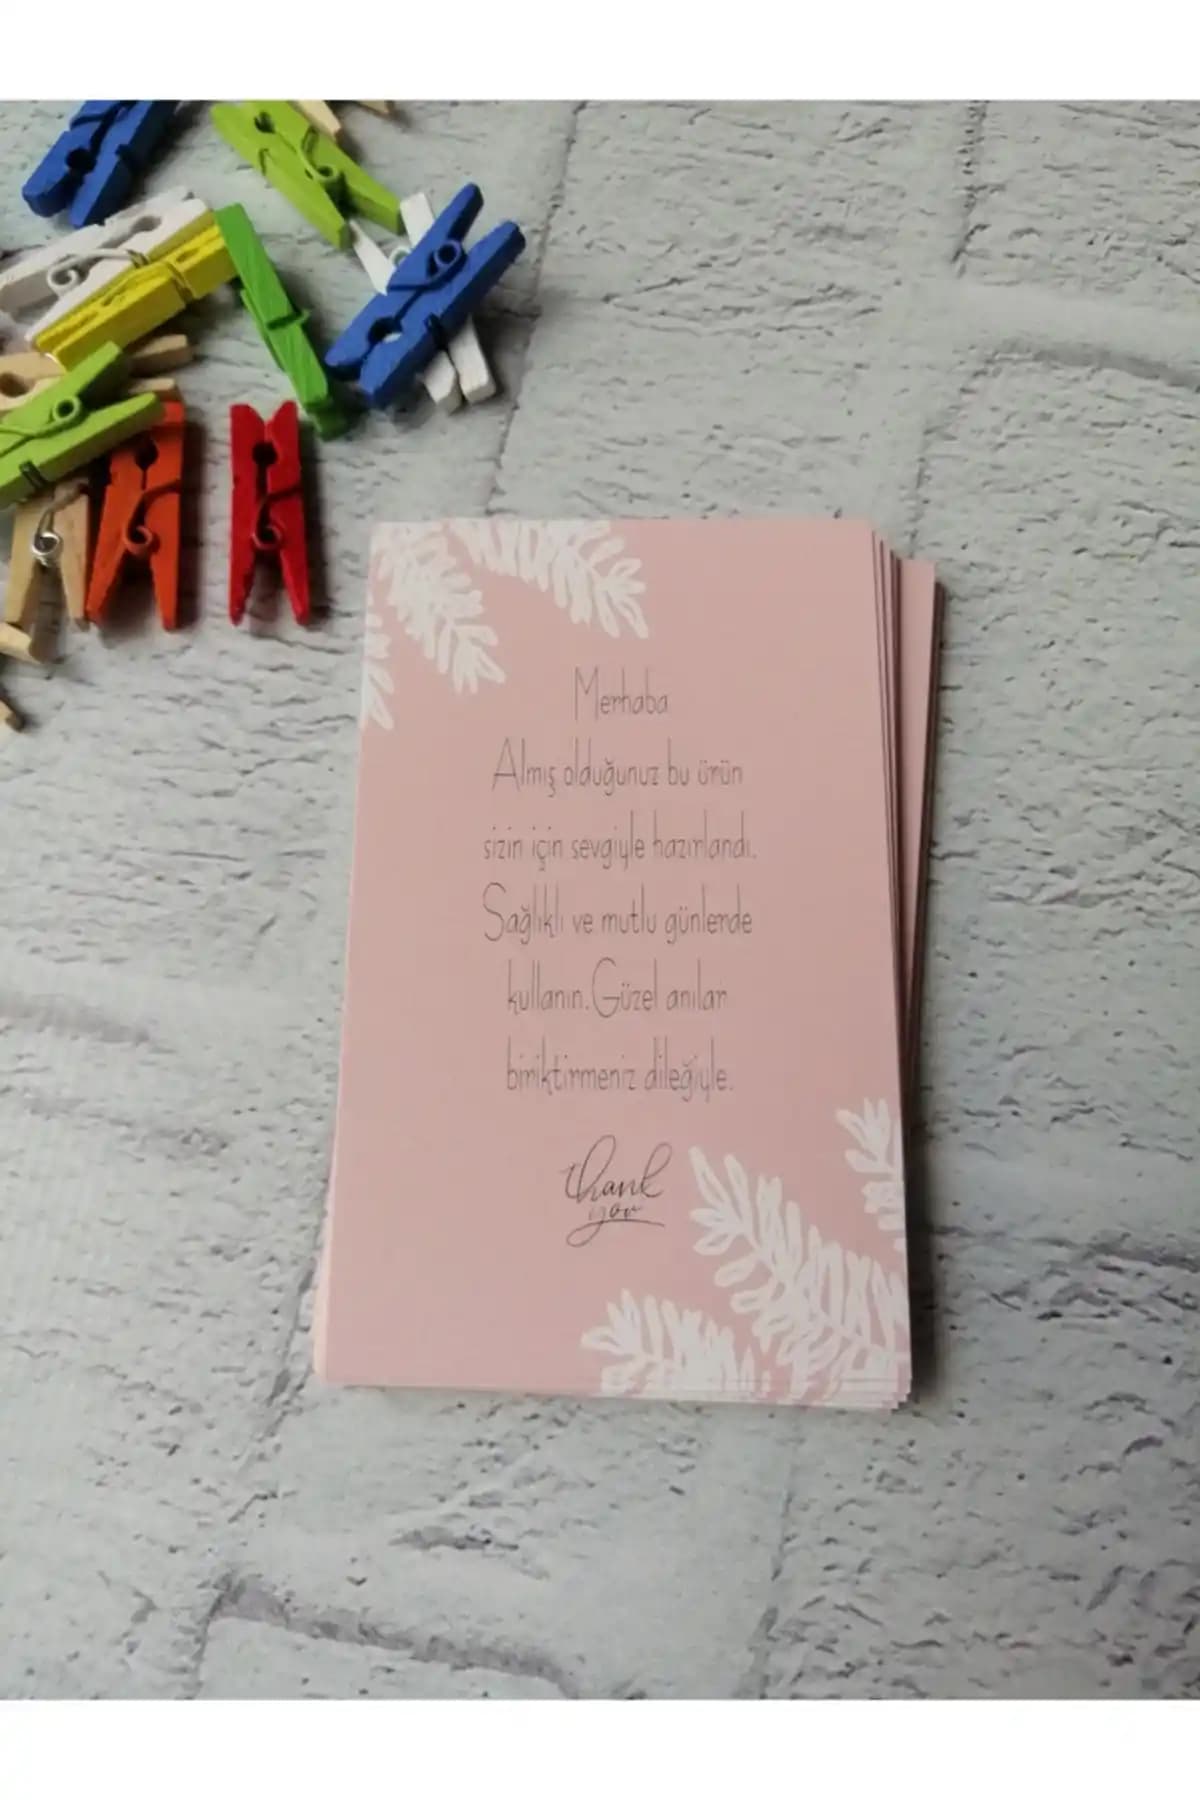 Merhaba
Almış olduğunuz bu ürün
sizin için sevgiyle hazırlandı.
Sağlıklı ve mutlu günlerde
kullanın.Güzel anılar
biriktirmeniz dileğiyle.
thank
you